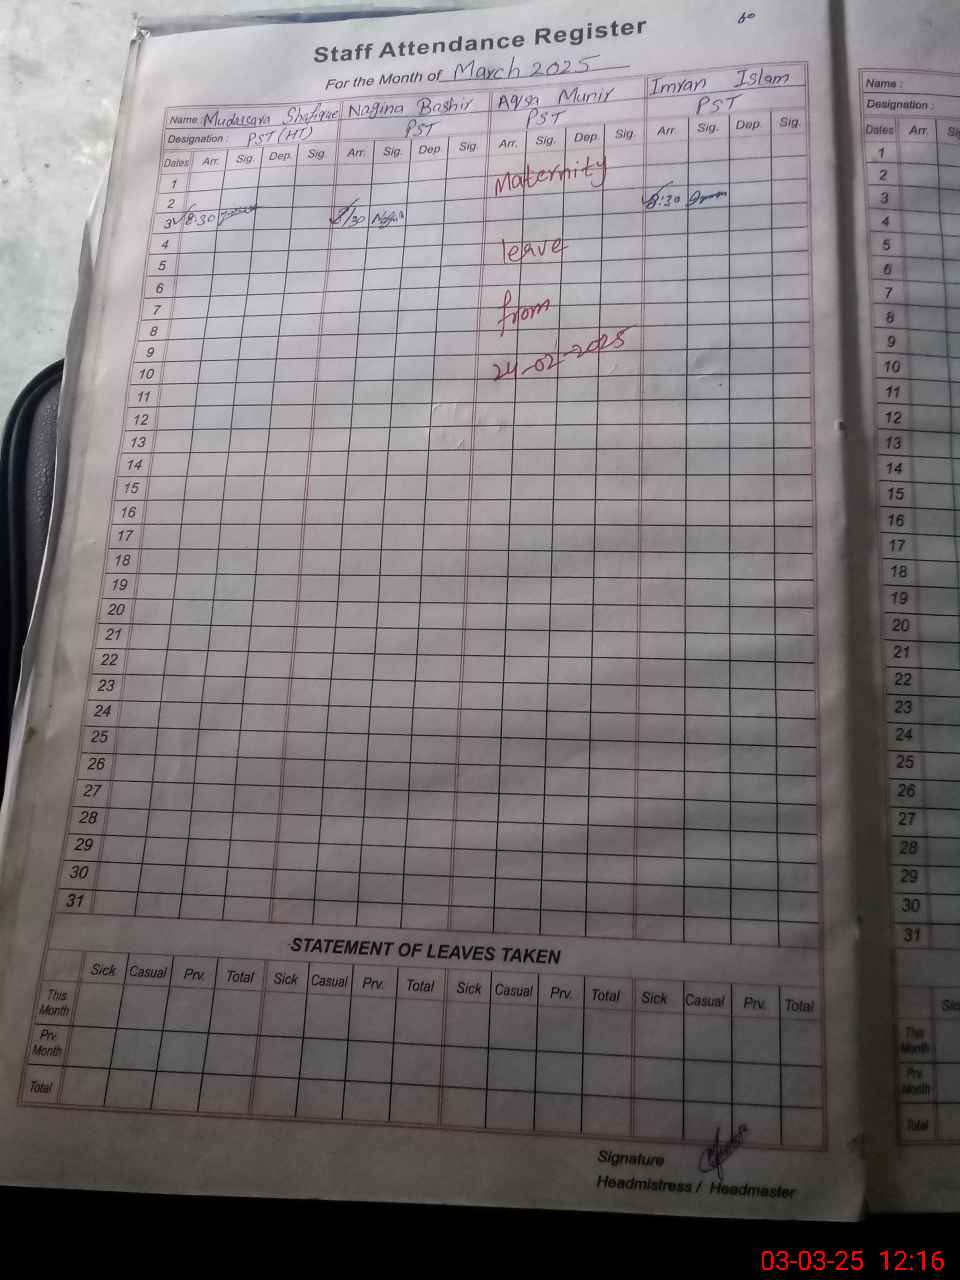 60
Staff Attendance Register
For the Month of March 2025
Name: Mudassara Shafique Nagina Bashir Aqsa Munir Imran Islam
Designation: PST (HT) PST PST PST
Dates Arr. Sig. Dep. Sig. Arr. Sig. Dep. Sig. Arr. Sig. Dep. Sig. Arr. Sig. Dep. Sig.
1 Maternity
2
3 8:30 8/30 8:30
4 leave
5
6
7 from
8
9
10 24-02-2025
11
12
13
14
15
16
17
18
19
20
21
22
23
24
25
26
27
28
29
30
31
STATEMENT OF LEAVES TAKEN
Sick Casual Prv. Total Sick Casual Prv. Total Sick Casual Prv. Total Sick Casual Prv. Total
This Month
Prv. Month
Total
Signature
Headmistress / Headmaster
Name :
Designation :
Dates Arr.
1
2
3
4
5
6
7
8
9
10
11
12
13
14
15
16
17
18
19
20
21
22
23
24
25
26
27
28
29
30
31
This Month
Prv. Month
Total
03-03-25 12:16